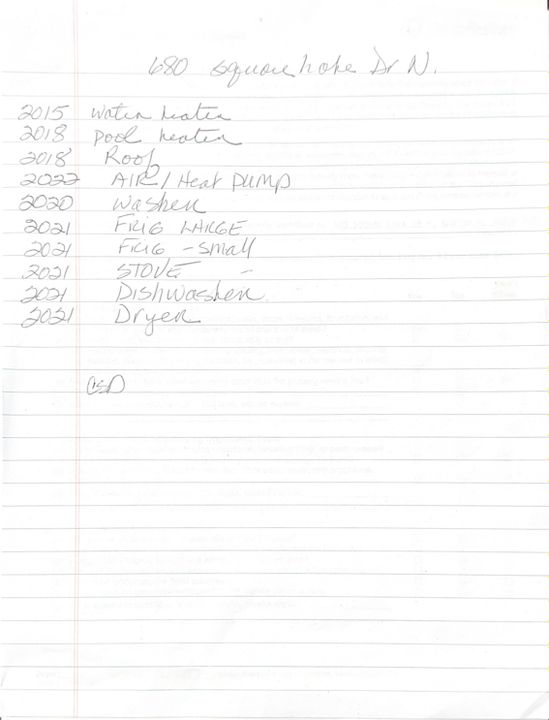 680 Square Lake Dr N.
2015 water heater
2018 pool heater
2018 Roof
2022 AIR / Heat PUMP
2020 washer
2021 FRIG LARGE
2021 FRIG - Small
2021 STOVE -
2021 Dishwasher
2021 Dryer